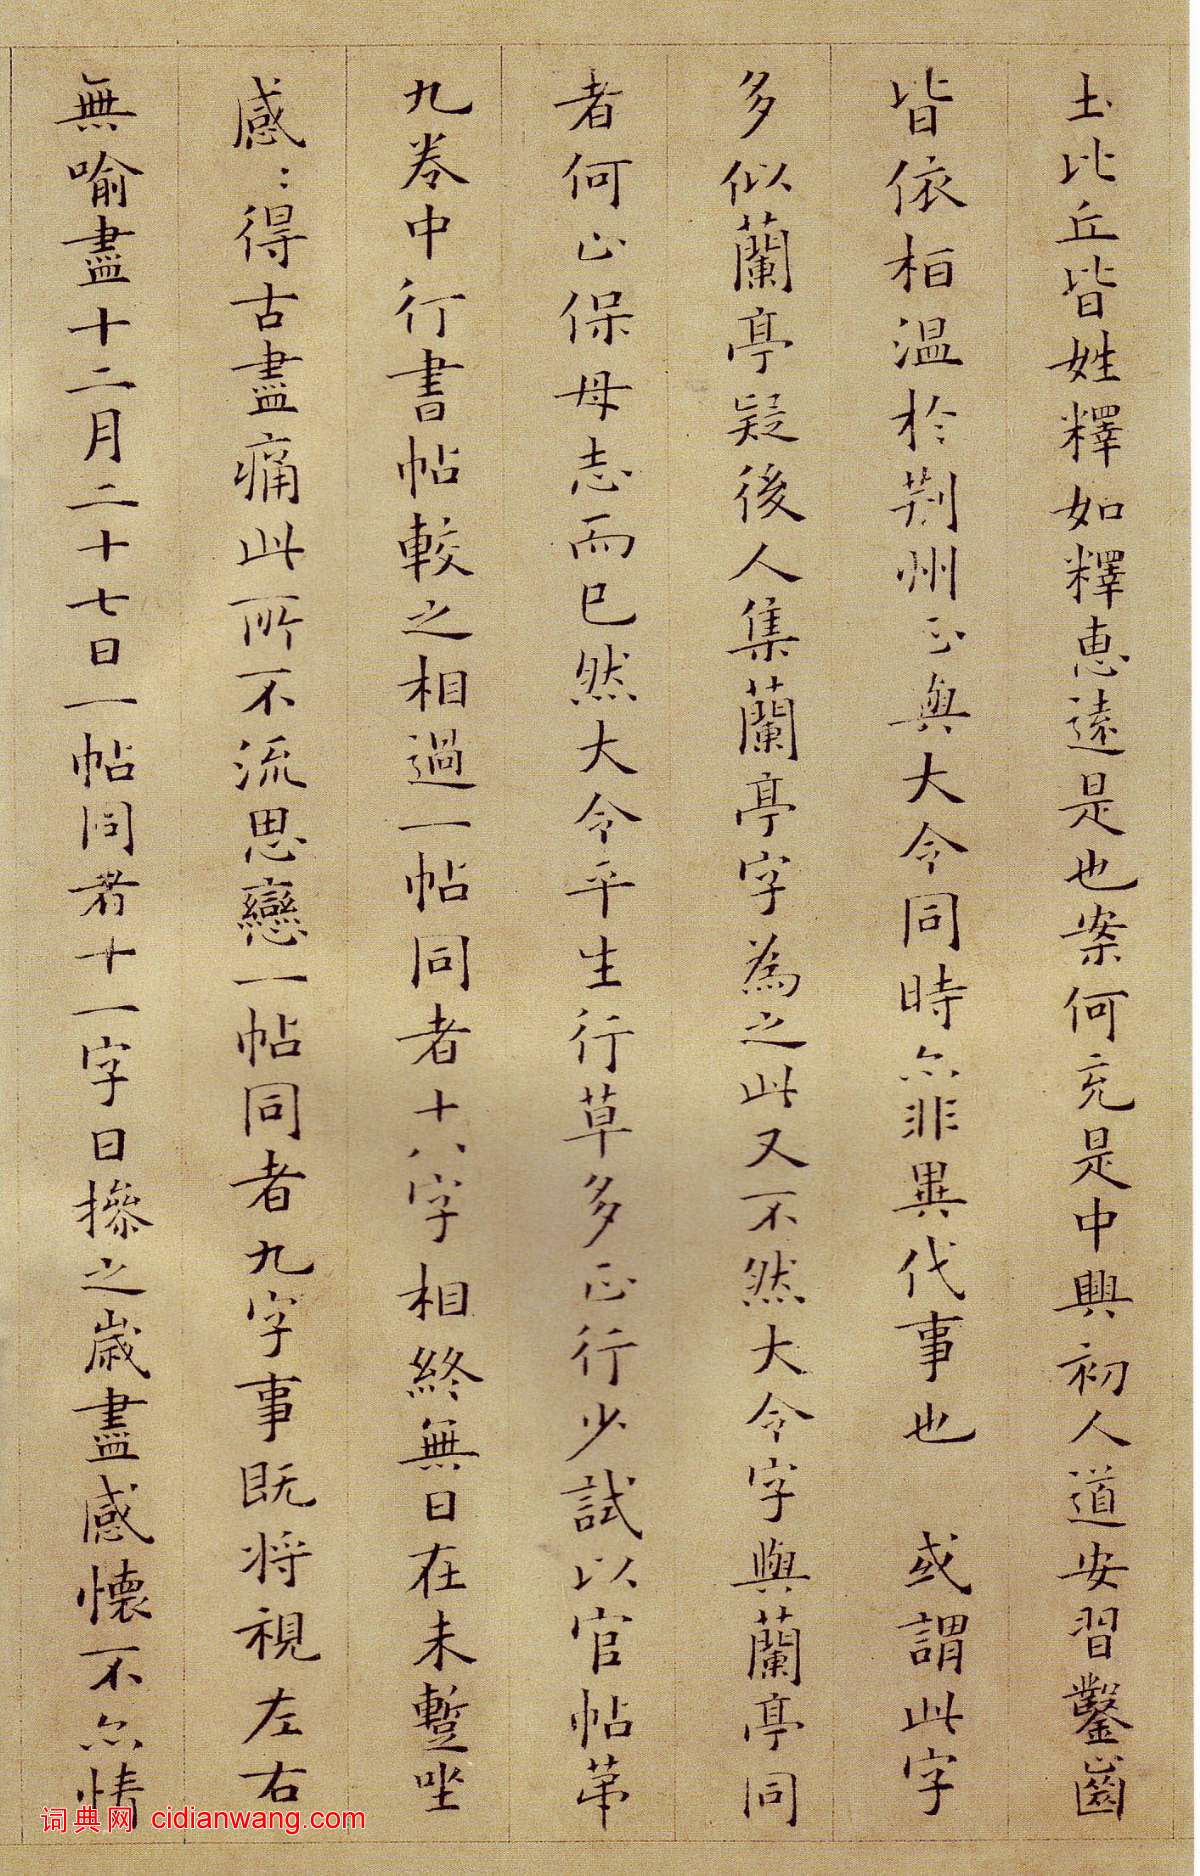 土比丘皆姓釋如釋惠遠是也案何充是中興初人道安習鑿齒
皆依桓温於荆州正與大令同時亦非異代事也 或謂此字
多似蘭亭疑後人集蘭亭字為之此又不然大令字與蘭亭同
者何止保母志而已然大令平生行草多正行少試以官帖苐
九卷中行書帖較之相過一帖同者十八字相終無日在未蹔坐
感〻得古盡痛此所不流思戀一帖同者九字事既将視左右
無喻盡十二月二十七日一帖同者十一字日摻之歳盡感懐不亦情
词典网 cidianwang.com